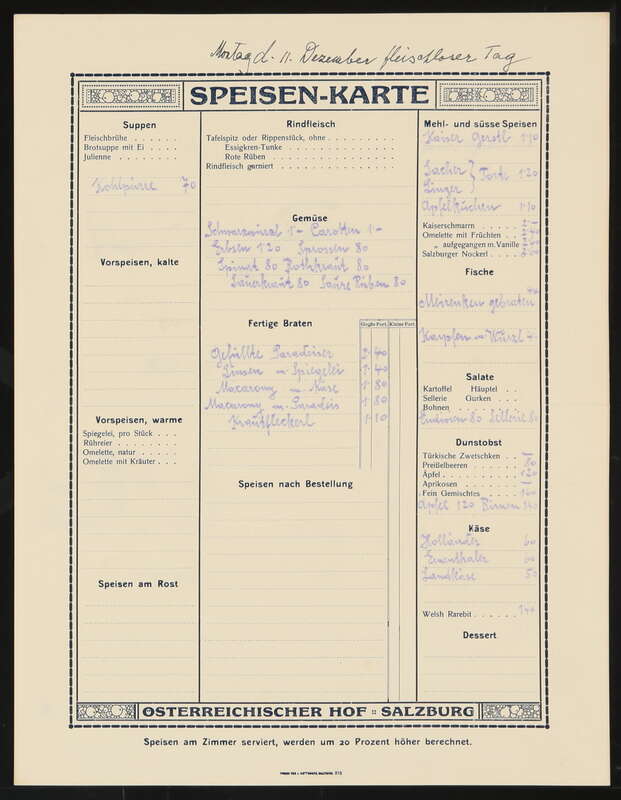 Montag d. 11. Dezember fleischloser Tag
SPEISEN-KARTE
Suppen
Fleischbrühe
Brotsuppe mit Ei
Julienne
Kohlpüree 70
Vorspeisen, kalte
Vorspeisen, warme
Spiegelei, pro Stück
Rühreier
Omelette, natur
Omelette mit Kräuter
Speisen am Rost
Rindfleisch
Tafelspitz oder Rippenstück, ohne
Essigkren-Tunke
Rote Rüben
Rindfleisch garniert
Gemüse
Schwarzwurzl 1- Carotten 1-
Erbsen 120 Sprossen 80
Spinat 80 Rothkraut 80
Sauerkraut 80 Saure Rüben 80
Fertige Braten
Große Port. Kleine Port.
Gefüllte Paradeiser 2·40
Linsen m Spiegelei 1·40
Macarony m Käse 1·80
Macarony m Paradeis 1·80
Krautfleckerl 1·10
Speisen nach Bestellung
Mehl- und süsse Speisen
Kaiser Gerstl 1·10
Sacher
Linzer } Torte 120
Apfelkuchen 1·10
Kaiserschmarrn
Omelette mit Früchten
„ aufgegangen m. Vanille
Salzburger Nockerl
Fische
gebraten
Karpfen m Wurzl
Salate
Kartoffel Häuptel
Sellerie Gurken
Bohnen
Endivien 80 Sellerie 80
Dunstobst
Türkische Zwetschken
Preißelbeeren 80
Äpfel 120
Aprikosen
Fein Gemischtes 160
Apfel 120 Birnen 140
Käse
Holländer 60
Ementhaler 60
Landkäse 50
Welsh Rarebit 144
Dessert
ÖSTERREICHISCHER HOF :: SALZBURG
Speisen am Zimmer serviert, werden um 20 Prozent höher berechnet.